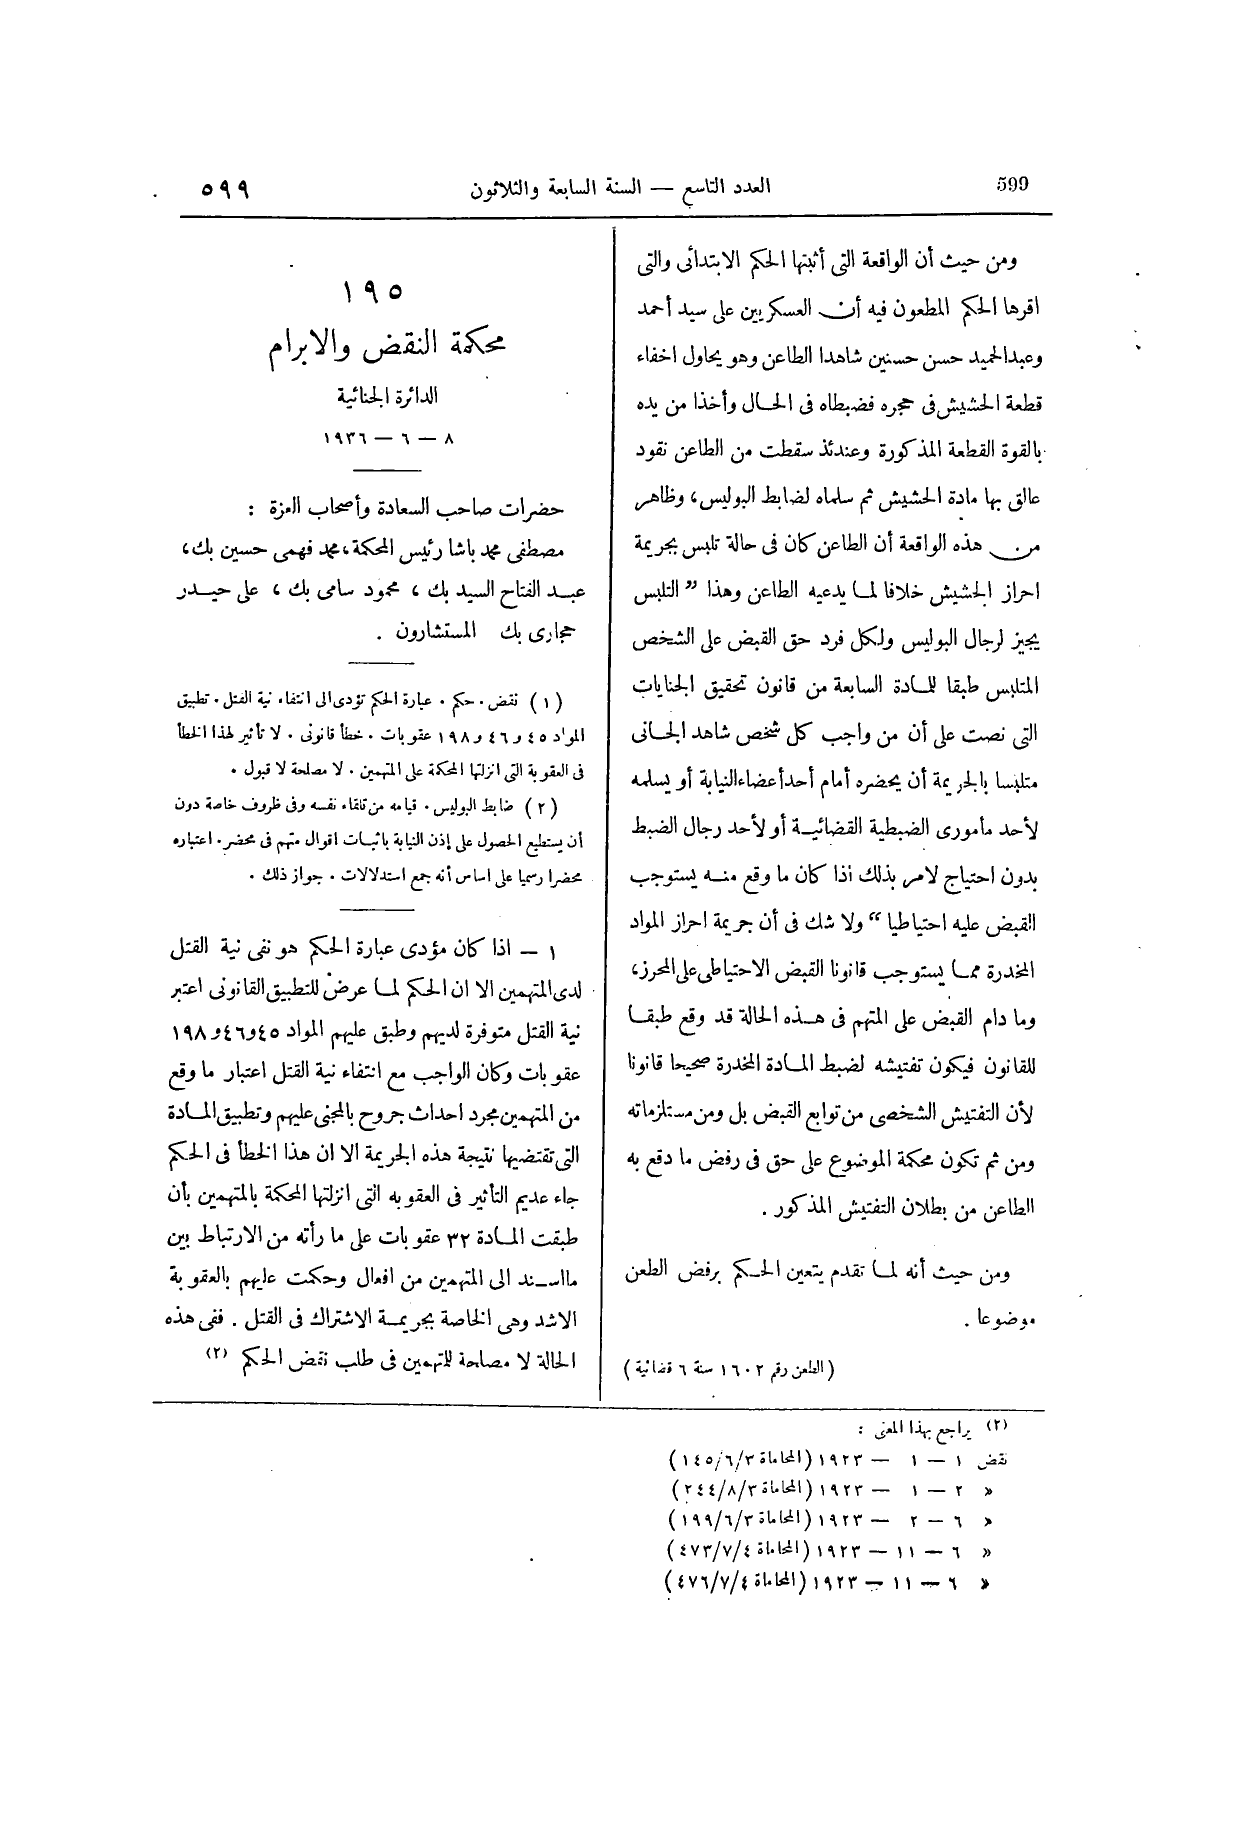 599
العدد التاسع — السنة السابعة والثلاثون
٥٩٩
ومن حيث أن الواقعة التى أثبتها الحكم الابتدائى والتى
اقرها الحكم المطعون فيه أن العسكريين على سيد أحمد
وعبدالحميد حسن حسنين شاهدا الطاعن وهو يحاول اخفاء
قطعة الحشيش فى حجره فضبطاه فى الحال وأخذا من يده
بالقوة القطعة المذكورة وعندئذ سقطت من الطاعن نقود
عالق بها مادة الحشيش ثم سلماه لضابط البوليس، وظاهر
من هذه الواقعة أن الطاعن كان فى حالة تلبس بجريمة
احراز الحشيش خلافا لما يدعيه الطاعن وهذا ” التلبس
يجيز لرجال البوليس ولكل فرد حق القبض على الشخص
المتلبس طبقا للمادة السابعة من قانون تحقيق الجنايات
التى نصت على أن من واجب كل شخص شاهد الجانى
متلبسا بالجريمة أن يحضره أمام أحد أعضاء النيابة أو يسلمه
لأحد مأمورى الضبطية القضائية أو لأحد رجال الضبط
بدون احتياج لامر بذلك اذا كان ما وقع منه يستوجب
القبض عليه احتياطيا “ ولا شك فى أن جريمة احراز المواد
المخدرة مما يستوجب قانونا القبض الاحتياطى على المحرز،
وما دام القبض على المتهم فى هذه الحالة قد وقع طبقا
للقانون فيكون تفتيشه لضبط المادة المخدرة صحيحا قانونا
لأن التفتيش الشخصى من توابع القبض بل ومن مستلزماته
ومن ثم تكون محكمة الموضوع على حق فى رفض ما دفع به
الطاعن من بطلان التفتيش المذكور .
ومن حيث أنه لما تقدم يتعين الحكم برفض الطعن
موضوعا .
( الطعن رقم ١٦٠٢ سنة ٦ قضائية )
١٩٥
محكمة النقض والابرام
الدائرة الجنائية
٨ — ٦ — ١٩٣٦
حضرات صاحب السعادة وأصحاب العزة :
مصطفى محمد باشا رئيس المحكمة، محمد فهمى حسين بك،
عبد الفتاح السيد بك ، محمود سامى بك ، على حيدر
حجازى بك المستشارون .
( ١ ) نقض . حكم . عبارة الحكم تؤدى الى انتفاء نية القتل . تطبيق
المواد ٤٥ و ٤٦ و ١٩٨ عقوبات . خطأ قانونى . لا تأثير لهذا الخطأ
فى العقوبة التى انزلتها المحكمة على المتهمين . لا مصلحة لا قبول .
( ٢ ) ضابط البوليس . قيامه من تلقاء نفسه وفى ظروف خاصة دون
أن يستطيع الحصول على إذن النيابة باثبات اقوال متهم فى محضر . اعتباره
محضرا رسميا على اساس أنه جمع استدلالات . جواز ذلك .
١ — اذا كان مؤدى عبارة الحكم هو نفى نية القتل
لدى المتهمين الا ان الحكم لما عرض للتطبيق القانونى اعتبر
نية القتل متوفرة لديهم وطبق عليهم المواد ٤٥ و٤٦ و ١٩٨
عقوبات وكان الواجب مع انتفاء نية القتل اعتبار ما وقع
من المتهمين مجرد احداث جروح بالمجنى عليهم وتطبيق المادة
التى تقتضيها نتيجة هذه الجريمة الا ان هذا الخطأ فى الحكم
جاء عديم التأثير فى العقوبه التى انزلتها المحكمة بالمتهمين بأن
طبقت المادة ٣٢ عقوبات على ما رأته من الارتباط بين
ما اسند الى المتهمين من افعال وحكمت عليهم بالعقوبة
الاشد وهى الخاصة بجريمة الاشتراك فى القتل . ففى هذه
الحالة لا مصلحة للمتهمين فى طلب نقض الحكم (٢)
(٢) يراجع بهذا المعنى :
نقض ١ — ١ — ١٩٢٣ (المحاماة ١٤٥/٦/٣)
« ٢ — ١ — ١٩٢٣ (المحاماة ٢٤٤/٨/٣)
« ٦ — ٢ — ١٩٢٣ (المحاماة ١٩٩/٦/٣)
« ٦ — ١١ — ١٩٢٣ (المحاماة ٤٧٣/٧/٤)
« ٦ — ١١ — ١٩٢٣ (المحاماة ٤٧٦/٧/٤)